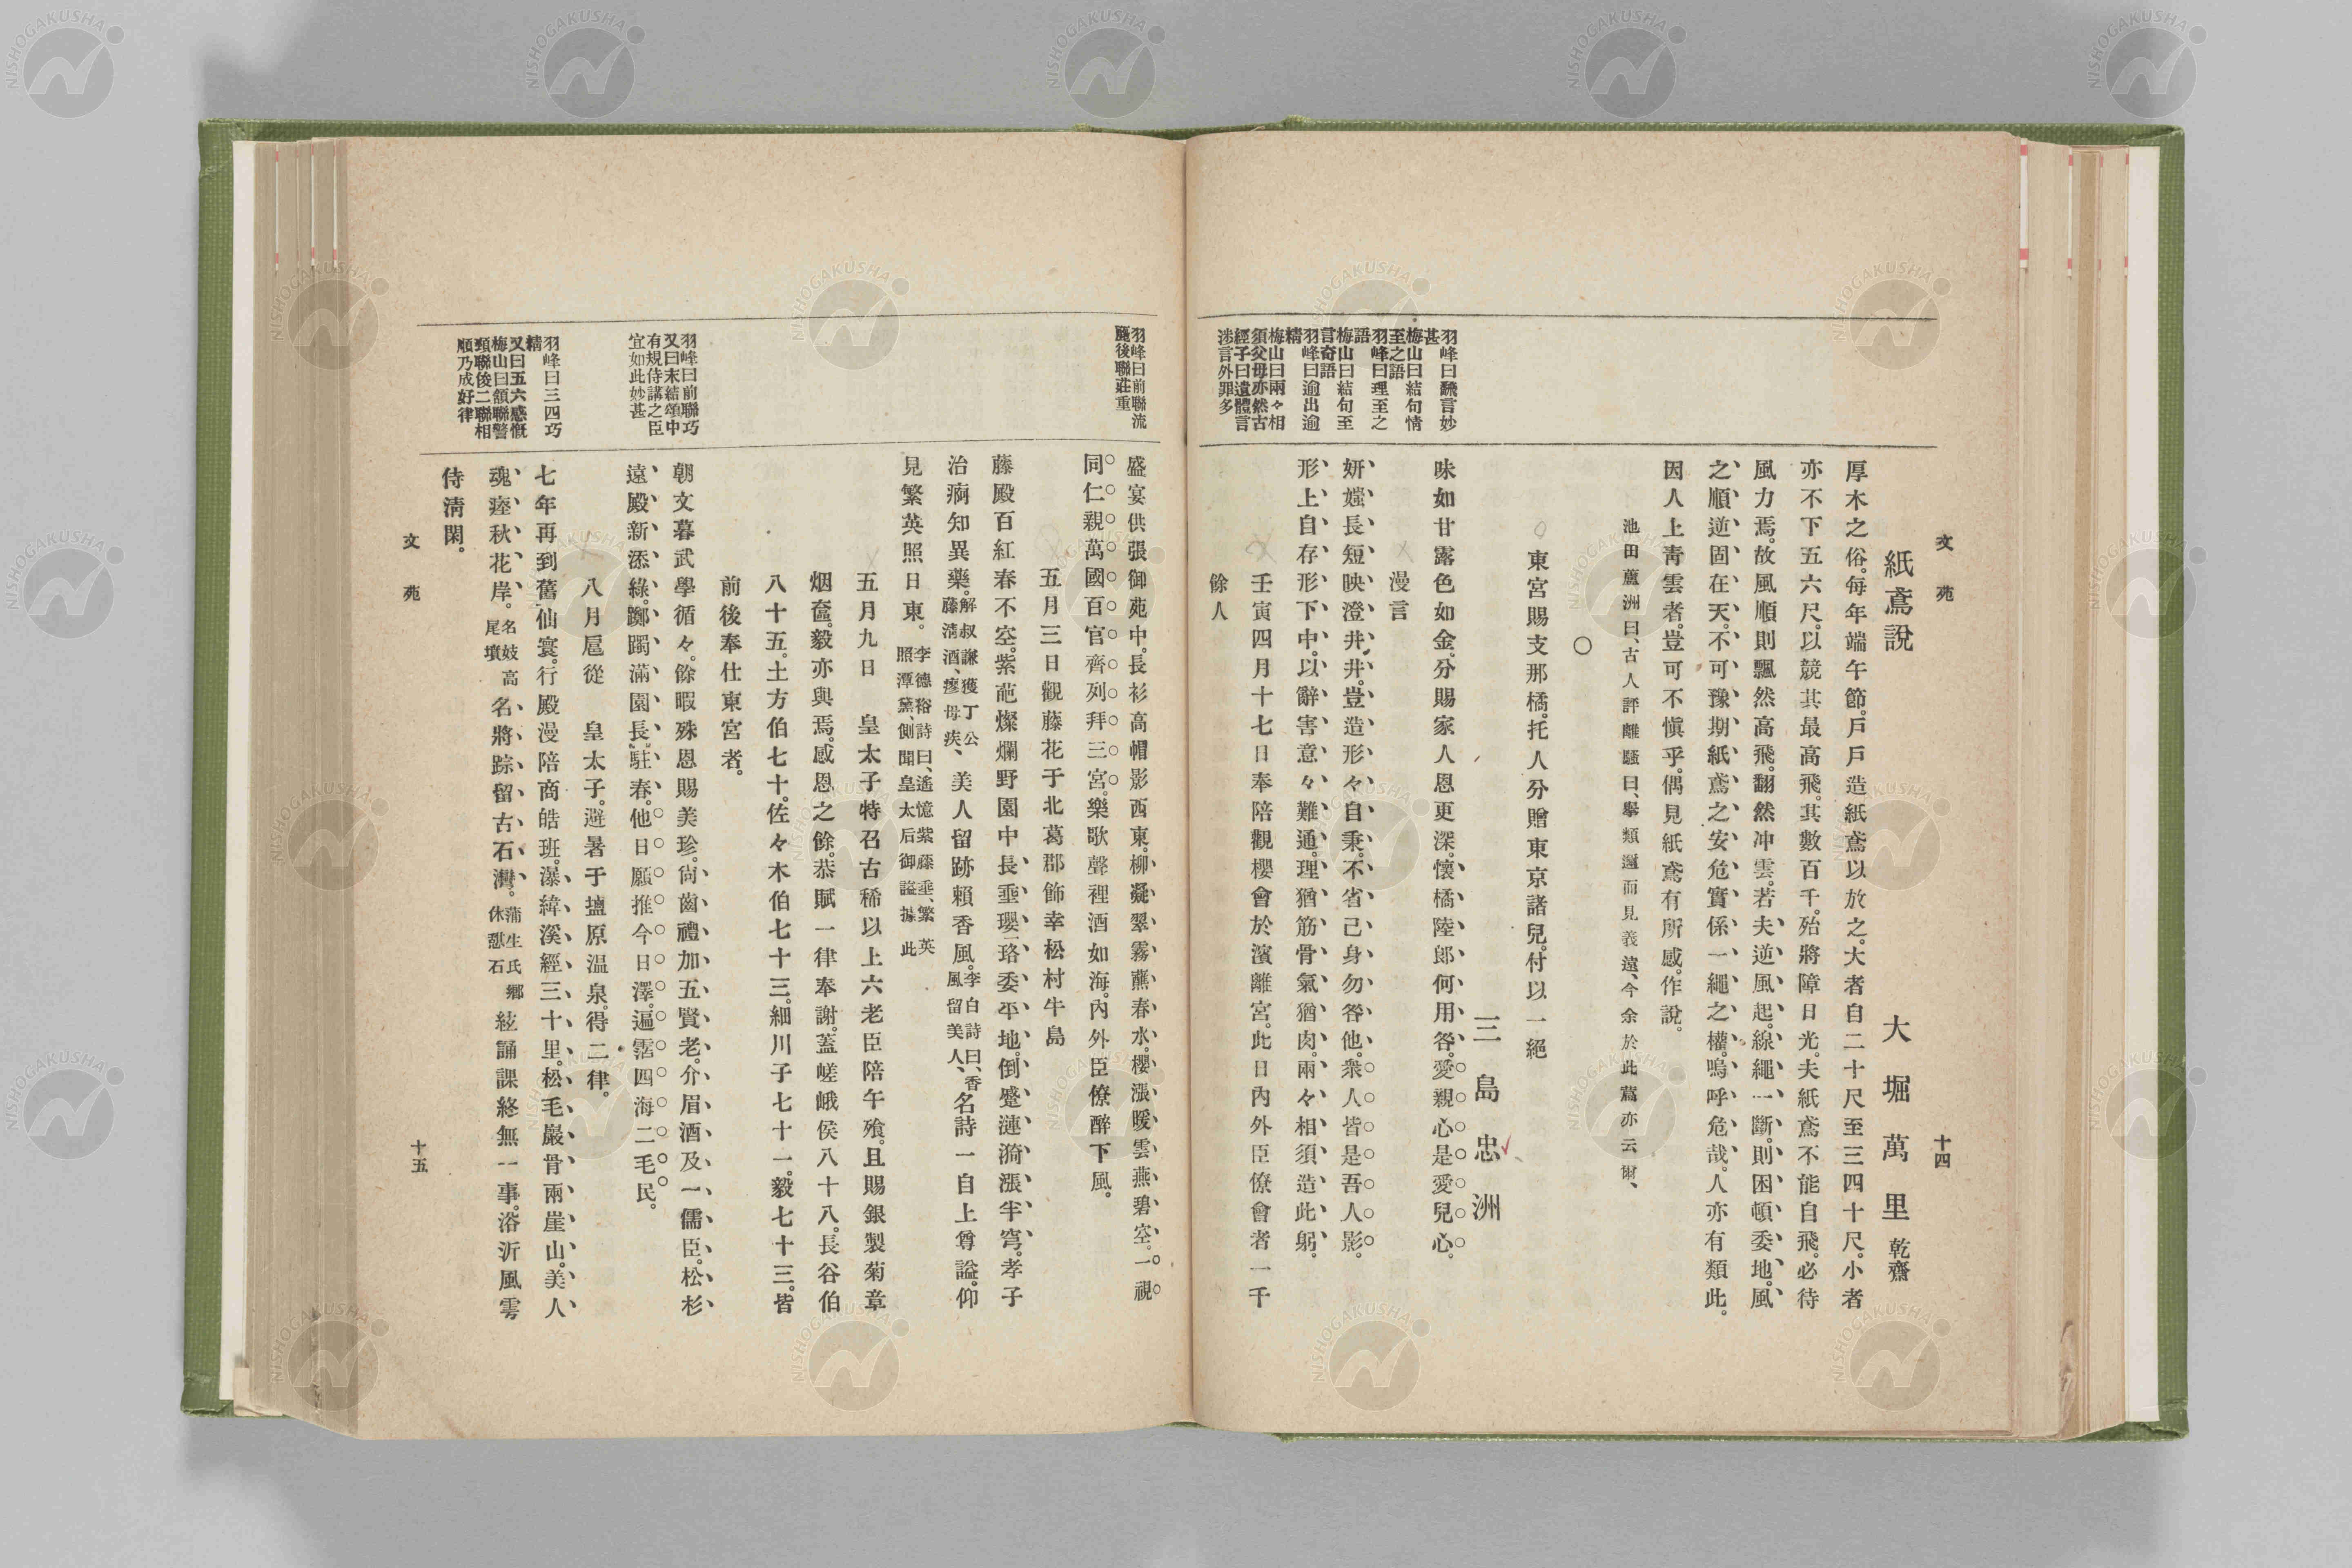 文苑
十四
紙鳶說
大堀萬里 乾齋
厚木之俗。每年端午節。戶戶造紙鳶以放之。大者自二十尺至三四十尺。小者
亦不下五六尺。以競其最高飛。其數百千。殆將障日光。夫紙鳶不能自飛。必待
風力焉。故風順則飄然高飛。翻然冲雲。若夫逆風起。線繩一斷。則困頓委地。風
之順逆固在天。不可豫期。紙鳶之安危實係一繩之權。嗚呼危哉。人亦有類此。
因人上靑雲者。豈可不愼乎。偶見紙鳶有所感。作說。
池田蘆洲曰、古人評離騷曰、擧類邇而見義遠、今余於此篇亦云爾、
○
東宮賜支那橘。托人分贈東京諸兒。付以一絕
三島忠洲
味如甘露色如金。分賜家人恩更深。懷橘陸郞何用咎。愛親心是愛兒心。
漫言
妍媸長短映澄井。井豈造形々自秉。不省己身勿咎他。衆人皆是吾人影。
形上自存形下中。以辭害意々難通。理猶筋骨氣猶肉。兩々相須造此躬。
壬寅四月十七日奉陪觀櫻會於濱離宮。此日內外臣僚會者一千
餘人
羽峰曰觴言妙
甚
梅山曰結句情
至之語
羽峰曰理至之
語
梅山曰結句至
言奇語
羽峰曰逾出逾
精
梅山曰兩々相
須父母亦然古
經子曰遺體言
涉言外罪多
盛宴供張御苑中。長衫高帽影西東。柳凝翠霧蘸春水。櫻漲暖雲燕碧空。一視
同仁親萬國。百官齊列拜三宮。樂歌聲裡酒如海。內外臣僚醉下風。
五月三日觀藤花于北葛郡飾幸松村牛島
藤殿百紅春不空。紫葩燦爛野園中。長垂瓔珞委平地。倒蹙漣漪漲半穹。孝子
治痾知異藥。解叔謙獲丁公藤淸酒、瘳母疾、美人留跡賴香風。李白詩曰、香風留美人、名詩一自上尊謚。仰
見繁英照日東。李德裕詩曰、遙憶紫藤垂、繁英照潭黛、側聞皇太后御謚據此
五月九日 皇太子特召古稀以上六老臣陪午飱。且賜銀製菊章
烟奩。毅亦與焉。感恩之餘。恭賦一律奉謝。蓋嵯峨侯八十八。長谷伯
八十五。土方伯七十。佐々木伯七十三。細川子七十一。毅七十三。皆
前後奉仕東宮者。
朝文暮武學循々。餘暇殊恩賜美珍。尙齒禮加五賢老。介眉酒及一儒臣。松杉
遠殿新添綠。躑躅滿園長駐春。他日願推今日澤。遍霑四海二毛民。
八月扈從 皇太子。避暑于鹽原温泉。得二律。
七年再到舊仙寰。行殿漫陪商皓班。瀑緯溪經三十里。松毛巖骨兩崖山。美人
魂瘞秋花岸。名妓高尾墳 名將踪留古石灣。蒲生氏鄕休憩石 絃誦課終無一事。浴沂風雩
侍淸閑。
羽峰曰前聯流
麗後聯莊重
羽峰曰前聯巧
又曰末結頌中
有規侍講之臣
宜如此妙甚
羽峰曰三四巧
精
又曰五六感慨
梅山曰頷聯警
頸聯俊二聯相
順乃成好律
文苑
十五